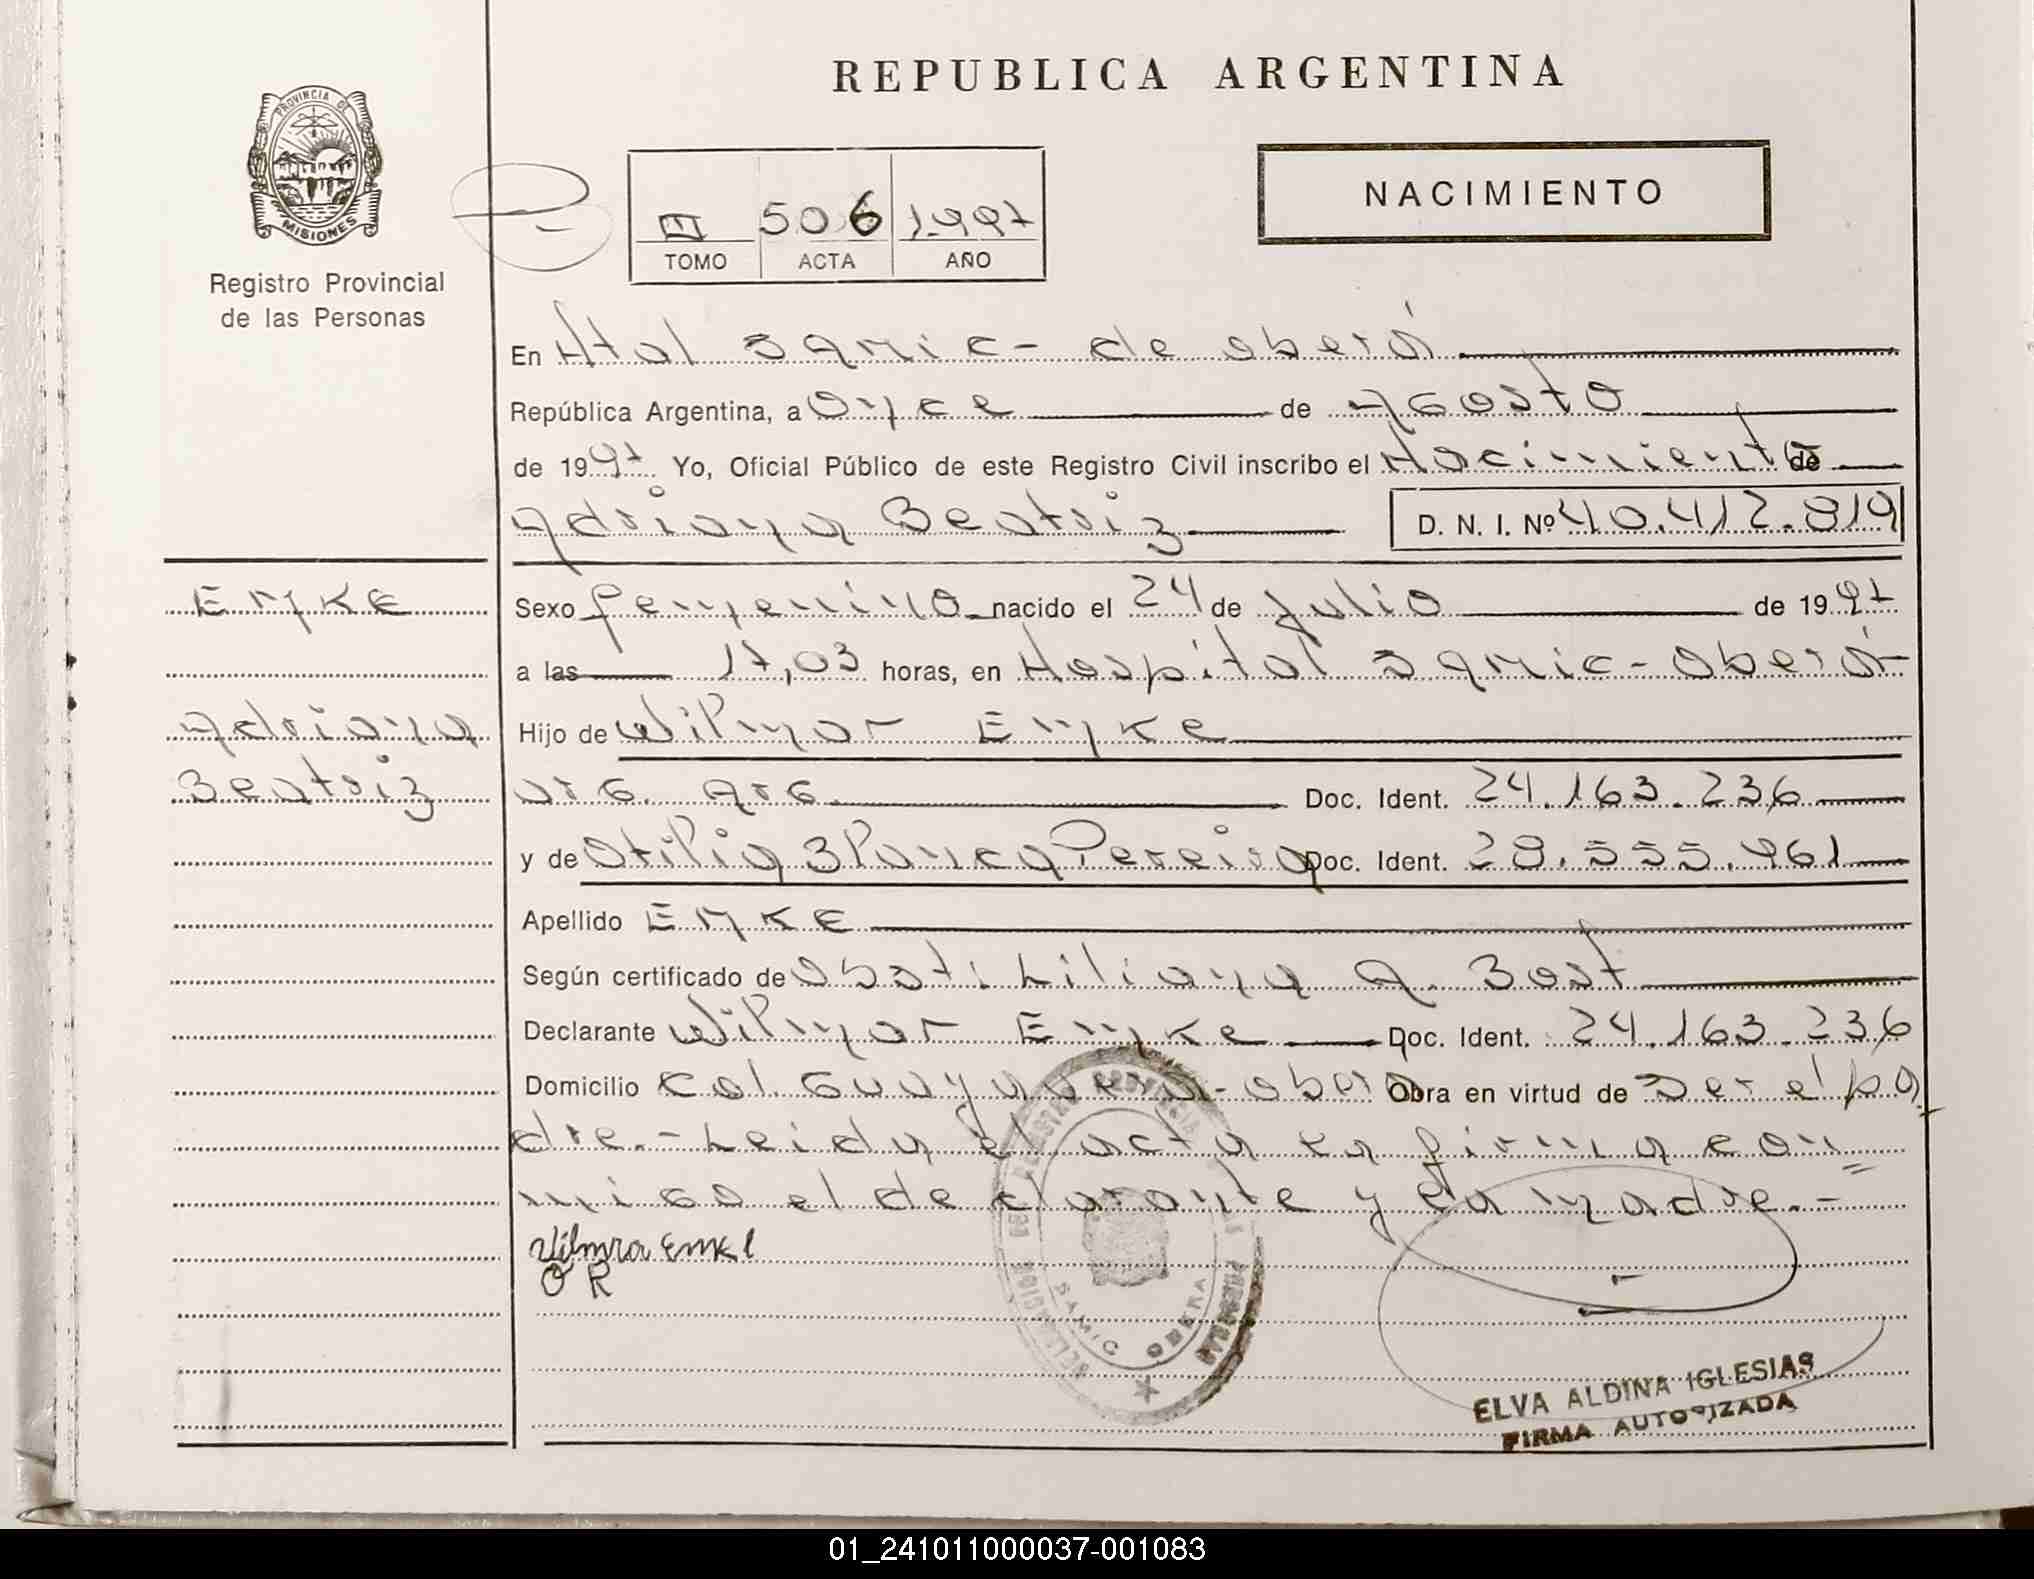 REPUBLICA ARGENTINA
PROVINCIA DE
MISIONES
Registro Provincial
de las Personas
III 506 1.997
TOMO ACTA AÑO
NACIMIENTO
En Htal Samic - de oberá
República Argentina, a once de Agosto
de 1997. Yo, Oficial Público de este Registro Civil inscribo el Nacimiento de
Adriana Beatriz D. N. I. Nº 40.412.819
EMKE
Sexo femenino nacido el 24 de Julio de 1997
a las 17,03 horas, en Hospital Samic - Oberá
Adriana
Hijo de Wilmar Emke
Beatriz
arg. arg. Doc. Ident. 24.163.236
y de Otilia Blanca Pereira Doc. Ident. 28.555.961
Apellido EMKE
Según certificado de obst. Liliana A. Bost
Declarante Wilmar Emke Doc. Ident. 24.163.236
Domicilio Col. Guayabera - oberá Obra en virtud de Ser el pa
dre.- Leida el acta la firma con
migo el declarante y la madre.-
Vilmra Emke
O R
SAMIC OBERA
ELVA ALDINA IGLESIAS
FIRMA AUTORIZADA
01_241011000037-001083